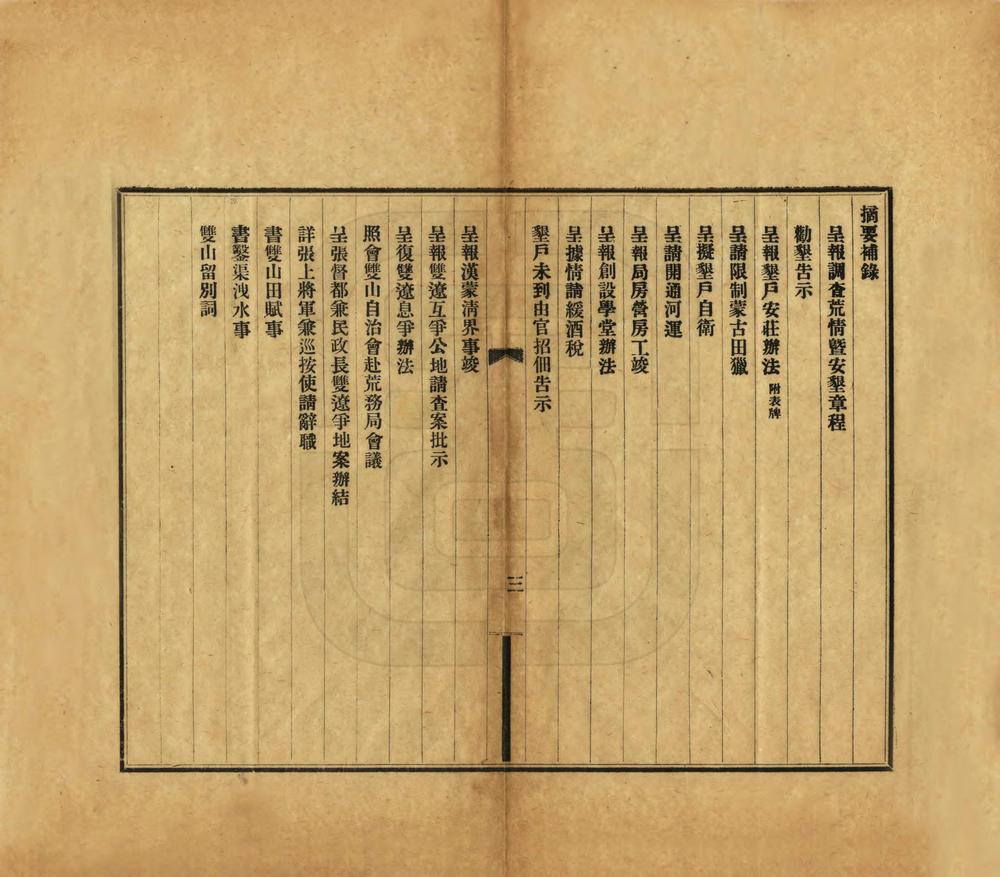 摘要補錄
呈報調查荒情曁安墾章程
勸墾告示
呈報墾戶安莊辦法 附表牌
呈請限制蒙古田獵
呈擬墾戶自衛
呈請開通河運
呈報局房營房工竣
呈報創設學堂辦法
呈據情請緩酒稅
墾戶未到由官招佃告示
三
呈報漢蒙淸界事竣
呈報雙遼互爭公地請查案批示
呈復雙遼息爭辦法
照會雙山自治會赴荒務局會議
呈張督都兼民政長雙遼爭地案辦結
詳張上將軍兼巡按使請辭職
書雙山田賦事
書鑿渠洩水事
雙山留別詞